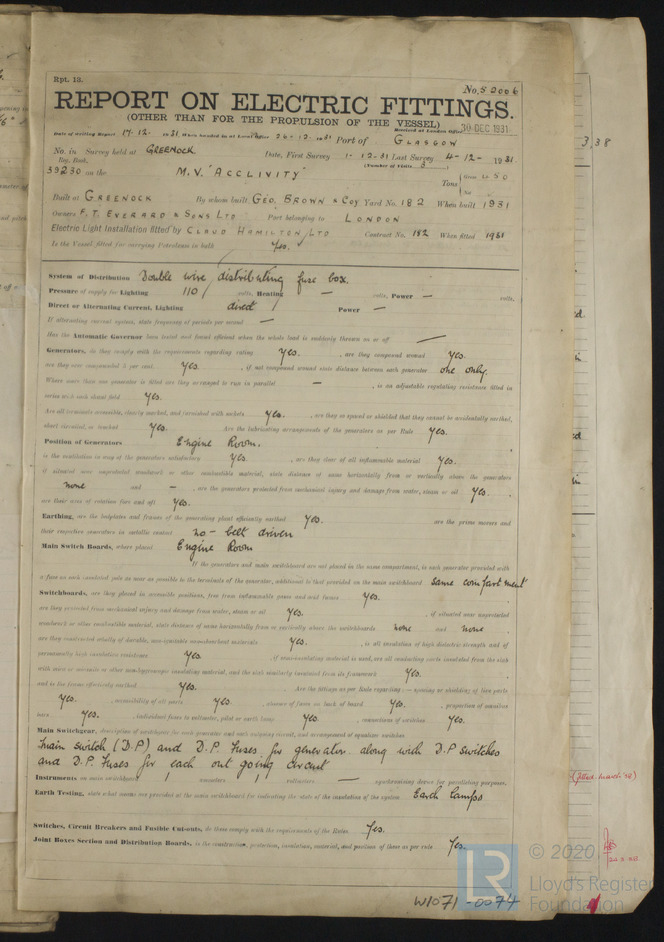 Rpt. 13.
No. 52006
REPORT ON ELECTRIC FITTINGS.
(OTHER THAN FOR THE PROPULSION OF THE VESSEL)
Date of writing Report 17.12. 1931 When handed in at Local Office 26.12.1931 Port of GLASGOW
Received at London Office 30 DEC 1931
No. in Survey held at GREENOCK Date, First Survey 1.12.31 Last Survey 4-12-1931
Reg. Book. (Number of Visits 3)
39230 on the M.V. "ACCLIVITY" Tons Gross 450
Net
Built at GREENOCK By whom built GEO. BROWN & COY Yard No. 182 When built 1931
Owners F.T. EVERARD & SONS LTD Port belonging to LONDON
Electric Light Installation fitted by CLAUD HAMILTON LTD Contract No. 182 When fitted 1931
Is the Vessel fitted for carrying Petroleum in bulk Yes.
System of Distribution Double wire distributing fuse box.
Pressure of supply for Lighting 110 volts, Heating — volts, Power — volts.
Direct or Alternating Current, Lighting direct Power —
If alternating current system, state frequency of periods per second —
Has the Automatic Governor been tested and found efficient when the whole load is suddenly thrown on or off —
Generators, do they comply with the requirements regarding rating Yes. , are they compound wound Yes.
are they over compounded 5 per cent. Yes. , if not compound wound state distance between each generator one only.
Where more than one generator is fitted are they arranged to run in parallel — , is an adjustable regulating resistance fitted in
series with each shunt field Yes.
Are all terminals accessible, clearly marked, and furnished with sockets Yes. , are they so spaced or shielded that they cannot be accidentally earthed,
short circuited, or touched Yes. Are the lubricating arrangements of the generators as per Rule Yes.
Position of Generators Engine Room.
is the ventilation in way of the generators satisfactory Yes. , are they clear of all inflammable material Yes.
if situated near unprotected woodwork or other combustible material, state distance of same horizontally from or vertically above the generators
none and — , are the generators protected from mechanical injury and damage from water, steam or oil Yes.
are their axes of rotation fore and aft Yes.
Earthing, are the bedplates and frames of the generating plant efficiently earthed Yes. are the prime movers and
their respective generators in metallic contact no - belt driven
Main Switch Boards, where placed Engine Room
If the generators and main switchboard are not placed in the same compartment, is each generator provided with
a fuse on each insulated pole as near as possible to the terminals of the generator, additional to that provided on the main switchboard same compartment
Switchboards, are they placed in accessible positions, free from inflammable gases and acid fumes Yes.
are they protected from mechanical injury and damage from water, steam or oil Yes. , if situated near unprotected
woodwork or other combustible material, state distance of same horizontally from or vertically above the switchboards none and none
are they constructed wholly of durable, non-ignitable non-absorbent materials Yes. , is all insulation of high dielectric strength and of
permanently high insulation resistance Yes. , if semi-insulating material is used, are all conducting parts insulated from the slab
with mica or micanite or other non-hygroscopic insulating material, and the slab similarly insulated from its framework Yes.
and is the frame effectively earthed Yes. Are the fittings as per Rule regarding:— spacing or shielding of live parts
Yes. , accessibility of all parts Yes. , absence of fuses on back of board Yes. , proportion of omnibus
bars Yes. , individual fuses to voltmeter, pilot or earth lamp Yes. , connections of switches Yes.
Main Switchgear, description of switchgear for each generator and each outgoing circuit, and arrangement of equalizer switches
Main switch (D.P) and D.P Fuses for generator along with D.P switches
and D.P fuses for each out going circuit
Instruments on main switchboard 1 ammeters 1 voltmeters — synchronising device for paralleling purposes.
Earth Testing, state what means are provided at the main switchboard for indicating the state of the insulation of the system Earth lamps
Switches, Circuit Breakers and Fusible Cut-outs, do these comply with the requirements of the Rules. Yes.
Joint Boxes Section and Distribution Boards, is the construction, protection, insulation, material, and position of these as per rule Yes.
W1071-0074
3,38
LR
© 2020
Lloyd's Register
Foundation